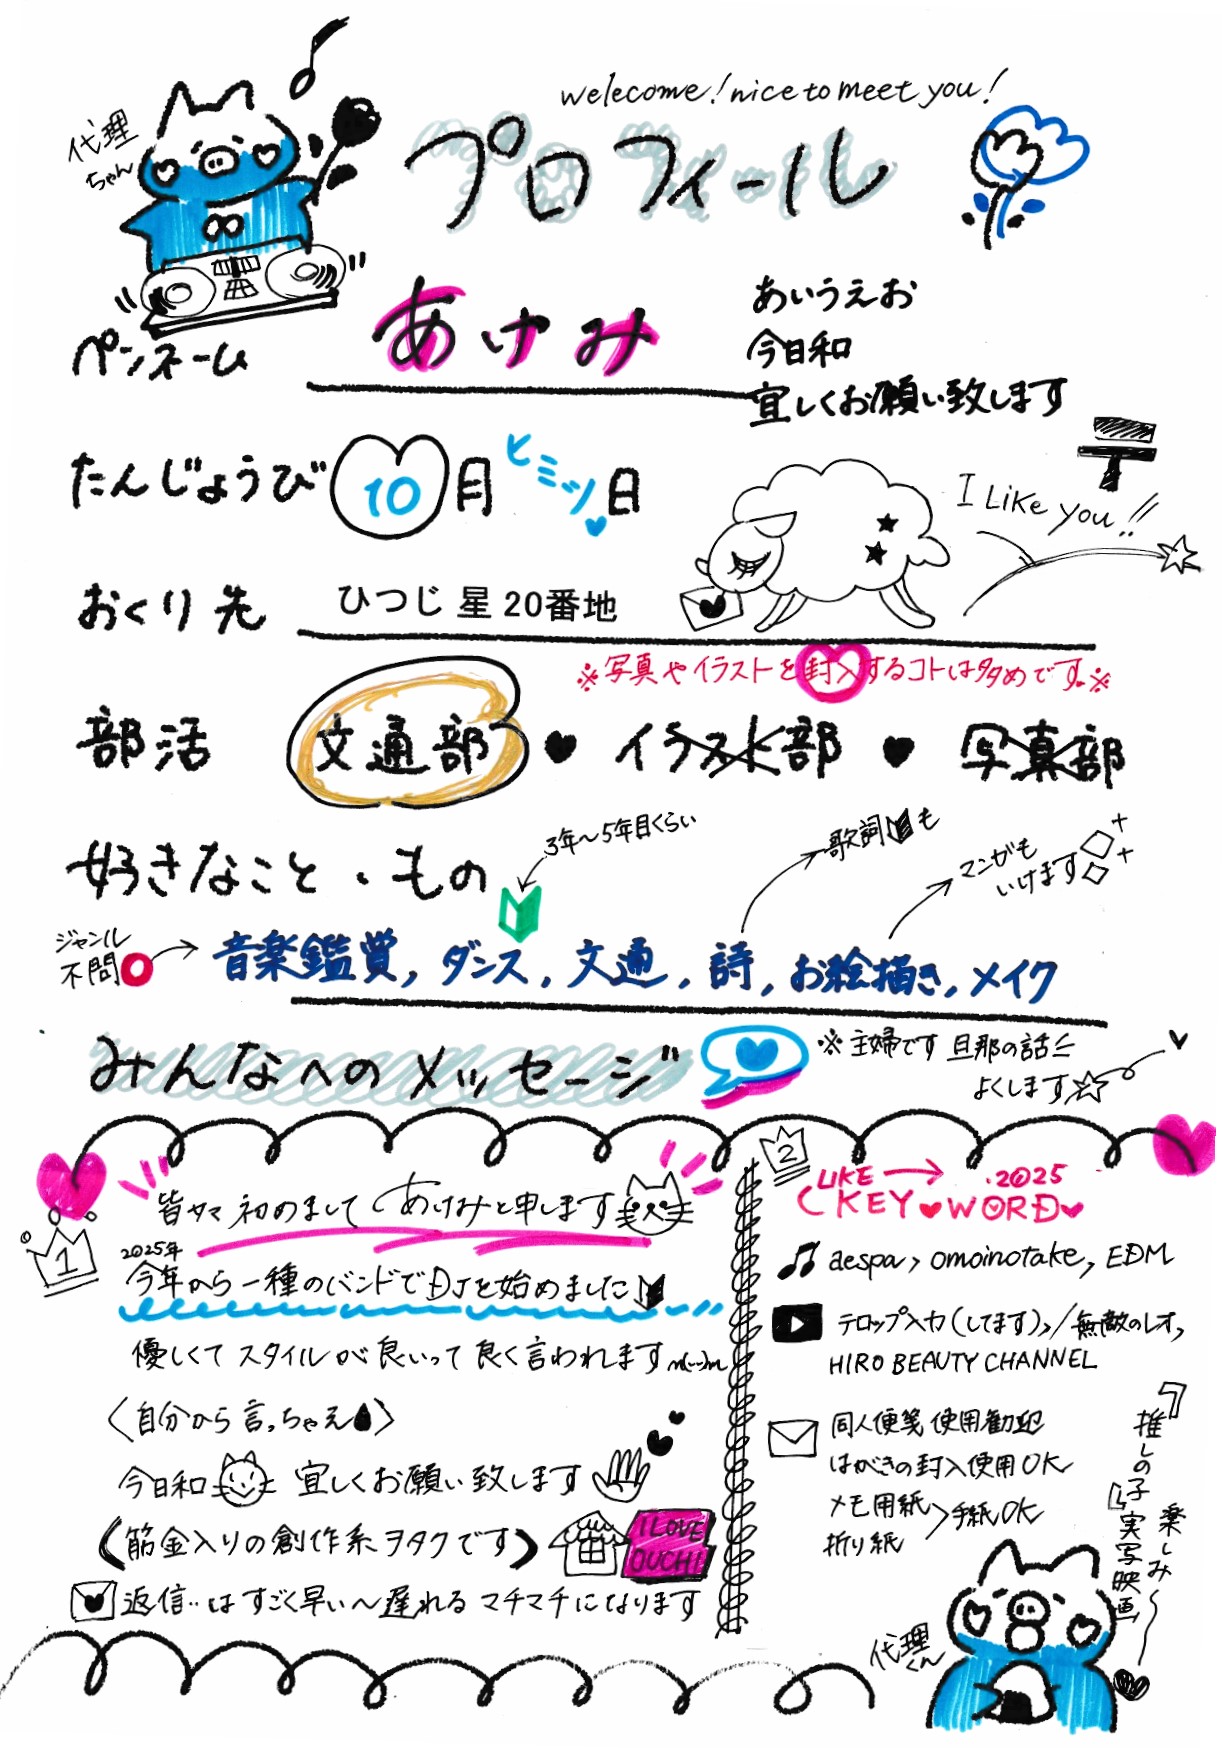 welecome! nice to meet you!
代理
ちゃん
プロフィール
ペンネーム
あけみ
あいうえお
今日和
宜しくお願い致します
たんじょうび 10月 ヒミツ日
I Like you!!
おくり先 ひつじ 星 20番地
※写真やイラストを封入するコトは多めです。※
部活 文通部 ♥ イラスト部 ♥ 写真部
好きなこと・もの
3年〜5年目くらい
歌詞も
マンガも
いけます
ジャンル
不問
音楽鑑賞, ダンス, 文通, 詩, お絵描き, メイク
みんなへのメッセージ
※主婦です 旦那の話
よくします☆
1
皆々マ 初めまして あけみと申します
2025年
今年から一種のバンドでDJを始めました
優しくて スタイルが良いって 良く言われますm(_ _)m
〈自分から言っちゃえ〉
今日和 宜しくお願い致します
(筋金入りの創作系ヲタクです)
I LOVE
OUCHI
返信‥は すごく早い〜遅れる マチマチになります
2
LIKE → .2025
KEY♥WORD♥
♫ aespa, omoinotake, EDM
テロップ入力(してます), /無敵のレオ,
HIRO BEAUTY CHANNEL
同人便箋 使用勧迎
はがきの封入使用OK
メモ用紙
折り紙
>手紙OK
『推しの子』実写映画
楽しみ〜
代理
くん